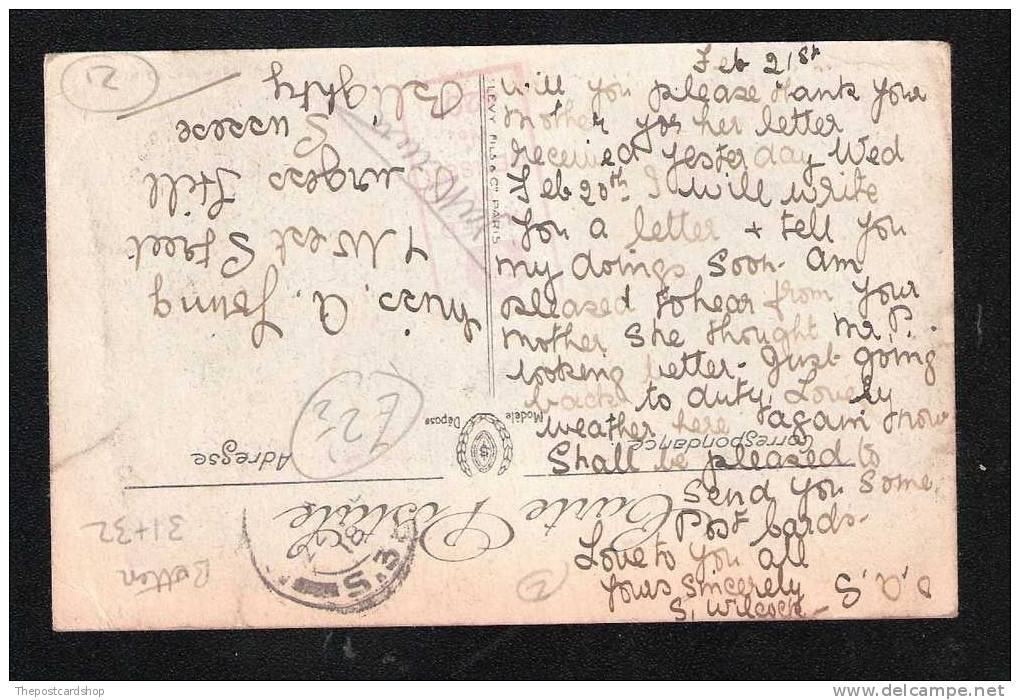 Feb 21st
Will you please thank your
Mother for her letter
received yesterday Wed
Feb 20th I will write
you a letter + tell you
my doings soon. Am
pleased to hear from your
mother she thought Mr. P.
looking better. Just going
back to duty, Lovely
weather here again now
Shall be pleased to
send you some
Post Cards.
Love to you all
Yours Sincerely
S. Wilcock
O.A.S
Carte Postale
Correspondance
Adresse
Modèle
Déposé
LEVY FILS & Cie PARIS
Miss. A. Young
West Street
Burgess Hill
Sussex
Blighty
S.3
21
31+32
D
Thepostcardshop
delcampe.net